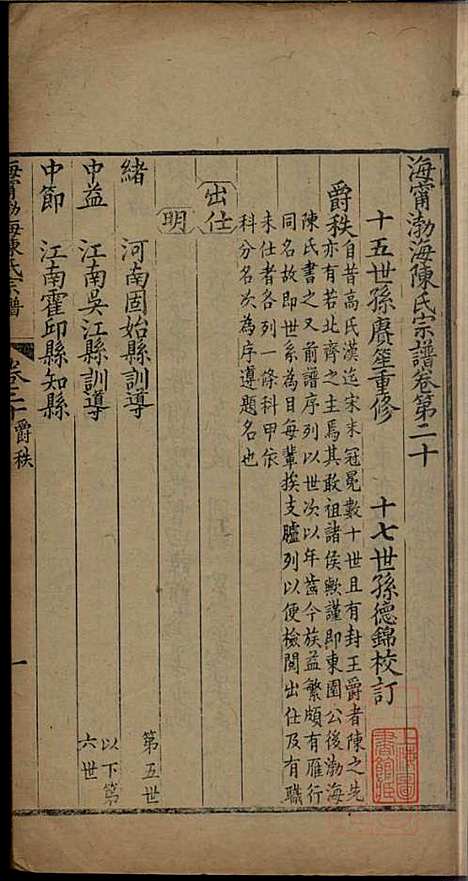 海甯渤海陳氏宗譜卷第二十
十五世孫賡笙重修 十七世孫德錦校訂
爵秩
自昔高氏漢迄宋末冠冕數十世且有封王爵者陳之先
亦有若北齊之主焉其敢祖諸侯歟謹即東園公後渤海
陳氏書之又前譜序列以世次以年齒今族益繁頗有雁行
同名故即世系為目每輩挨支臚列以便檢閱出仕及有職
未仕者各列一條科甲依
科分名次為序遵題名也
出仕
明
緒 河南固始縣訓導 第五世
中益 江南吳江縣訓導 以下第六世
中節 江南霍邱縣知縣
海甯渤海陳氏宗譜 卷二十 爵秩 一
上海圖書館藏